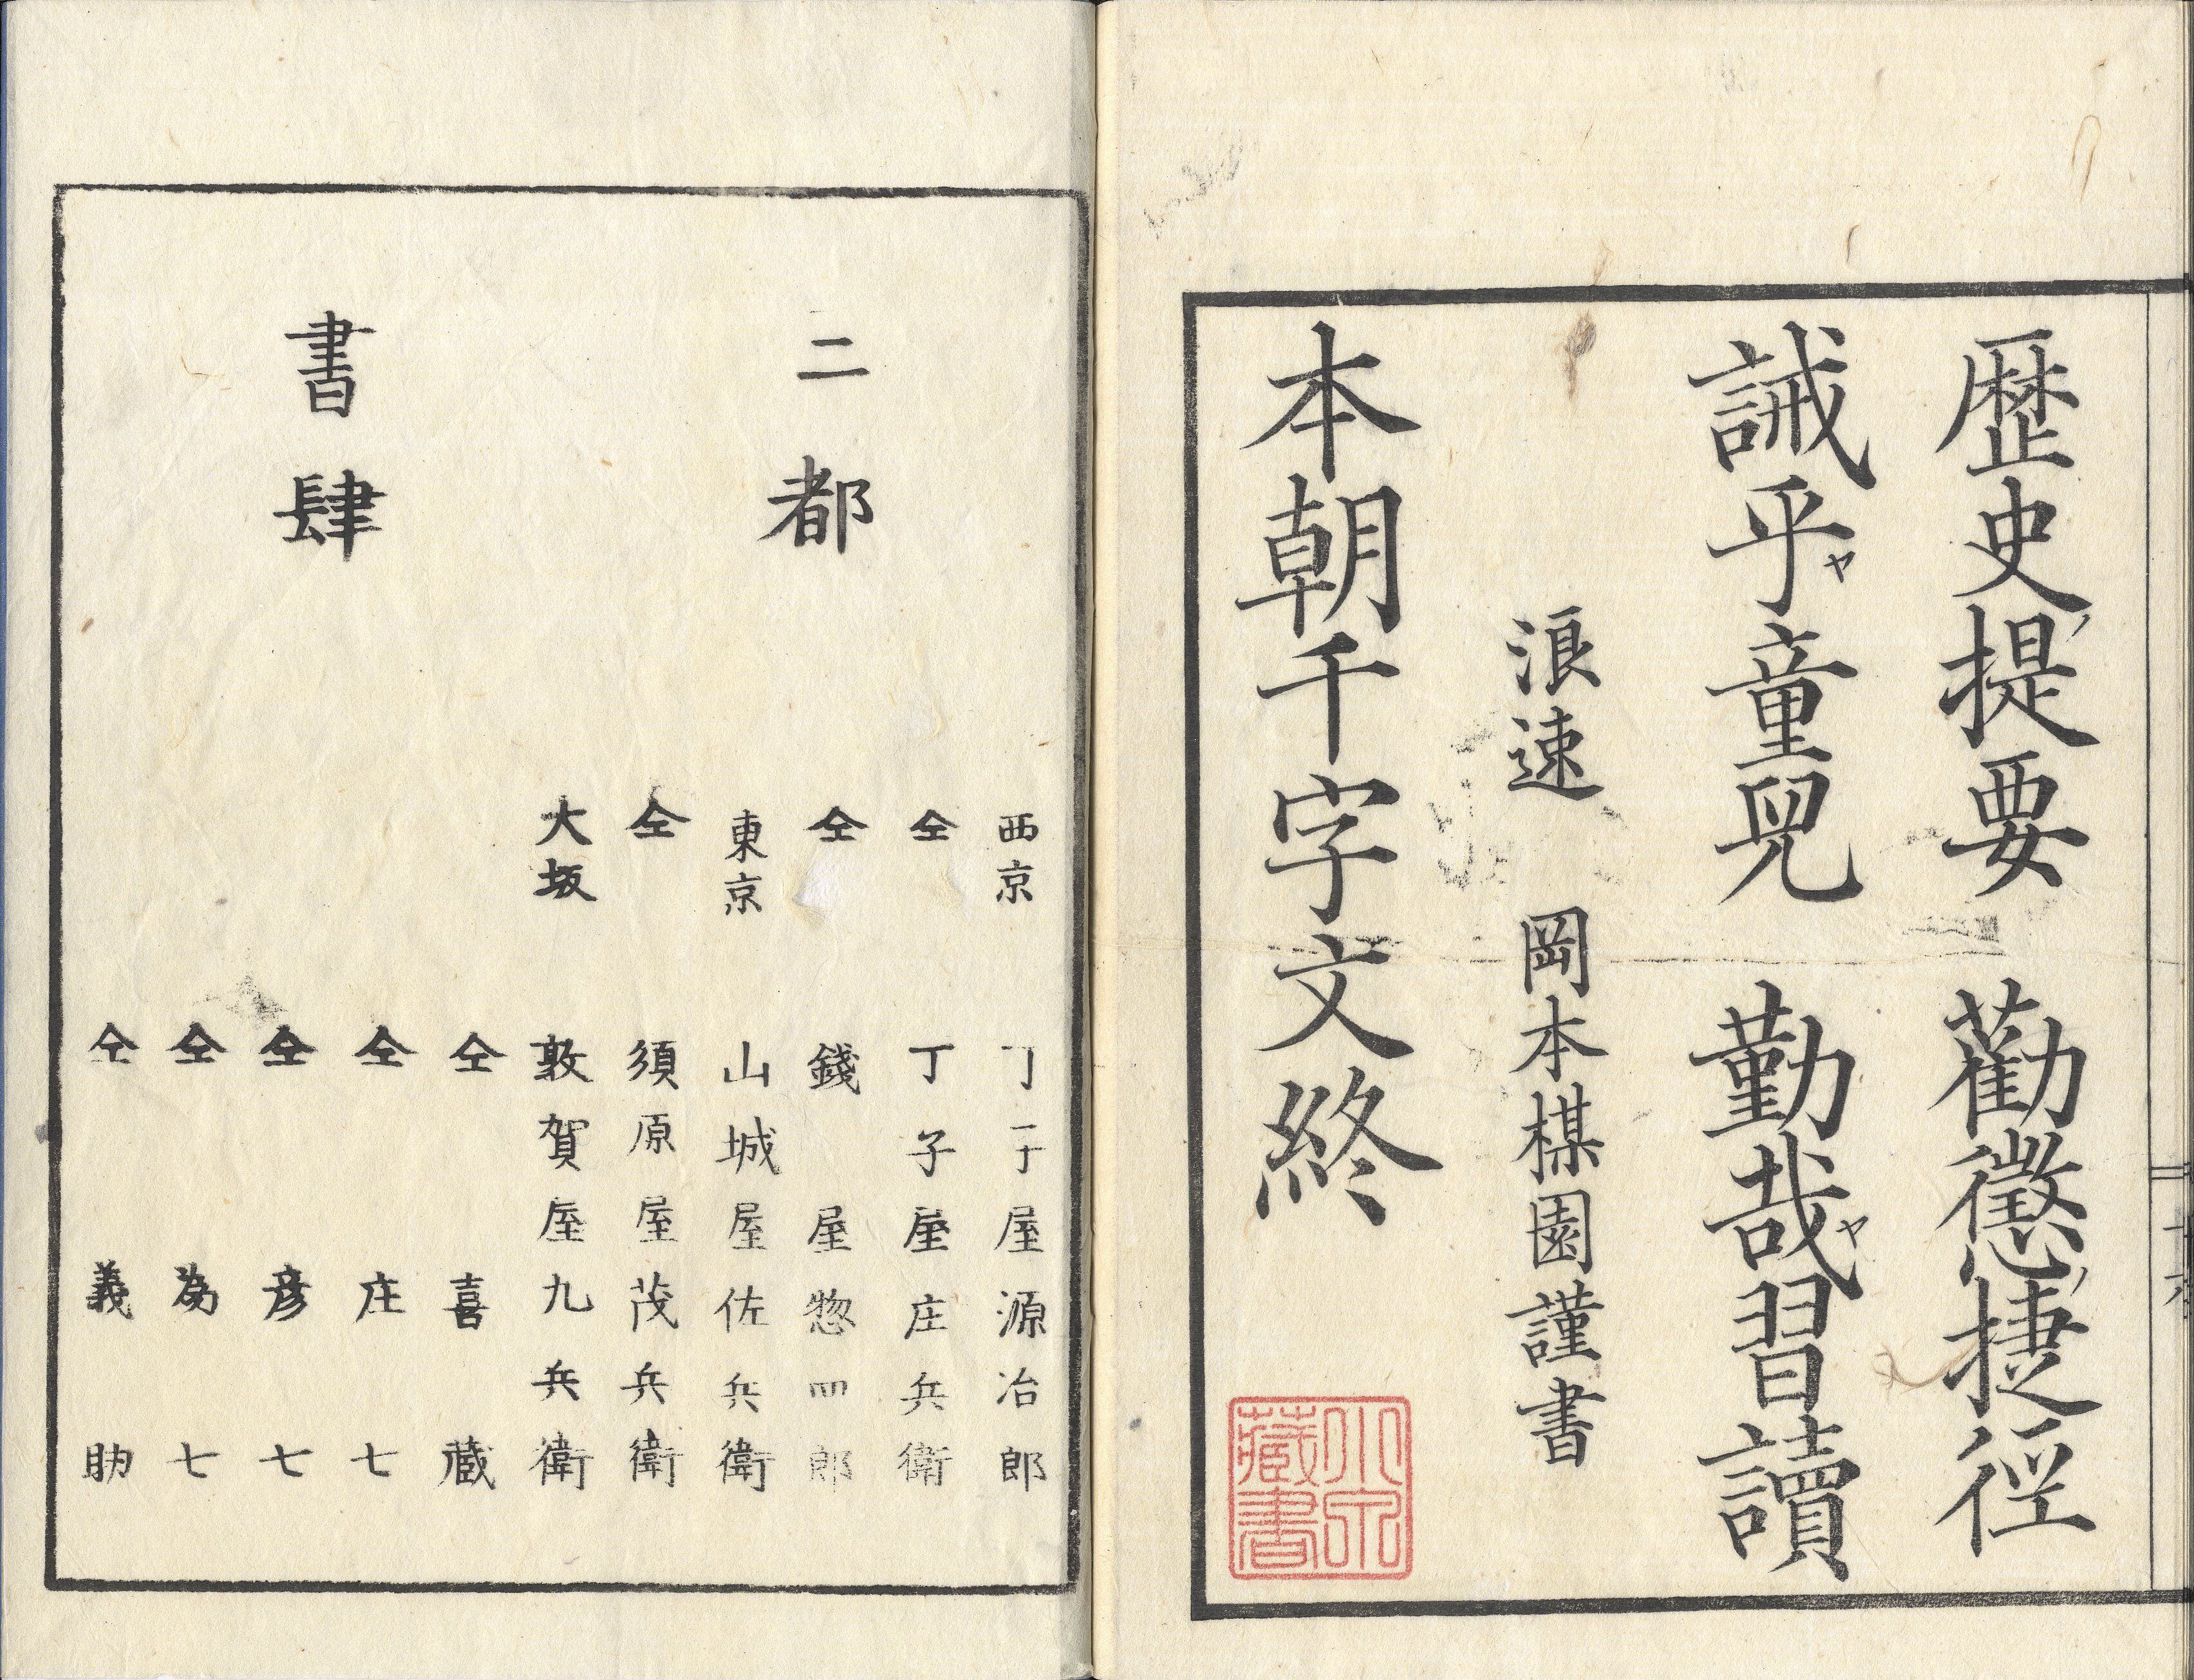 歴史ノ提要 勸懲ノ捷徑
誡乎ヤ童兒 勤哉ヤ習讀
浪速 岡本楳園謹書
本朝千字文終
藏書
二都
書肆
西京 丁子屋源治郎
仝 丁子屋庄兵衛
仝 錢屋惣四郎
東京 山城屋佐兵衛
仝 須原屋茂兵衛
大坂 敦賀屋九兵衛
仝 喜藏
仝 庄七
仝 彦七
仝 為七
仝 義助